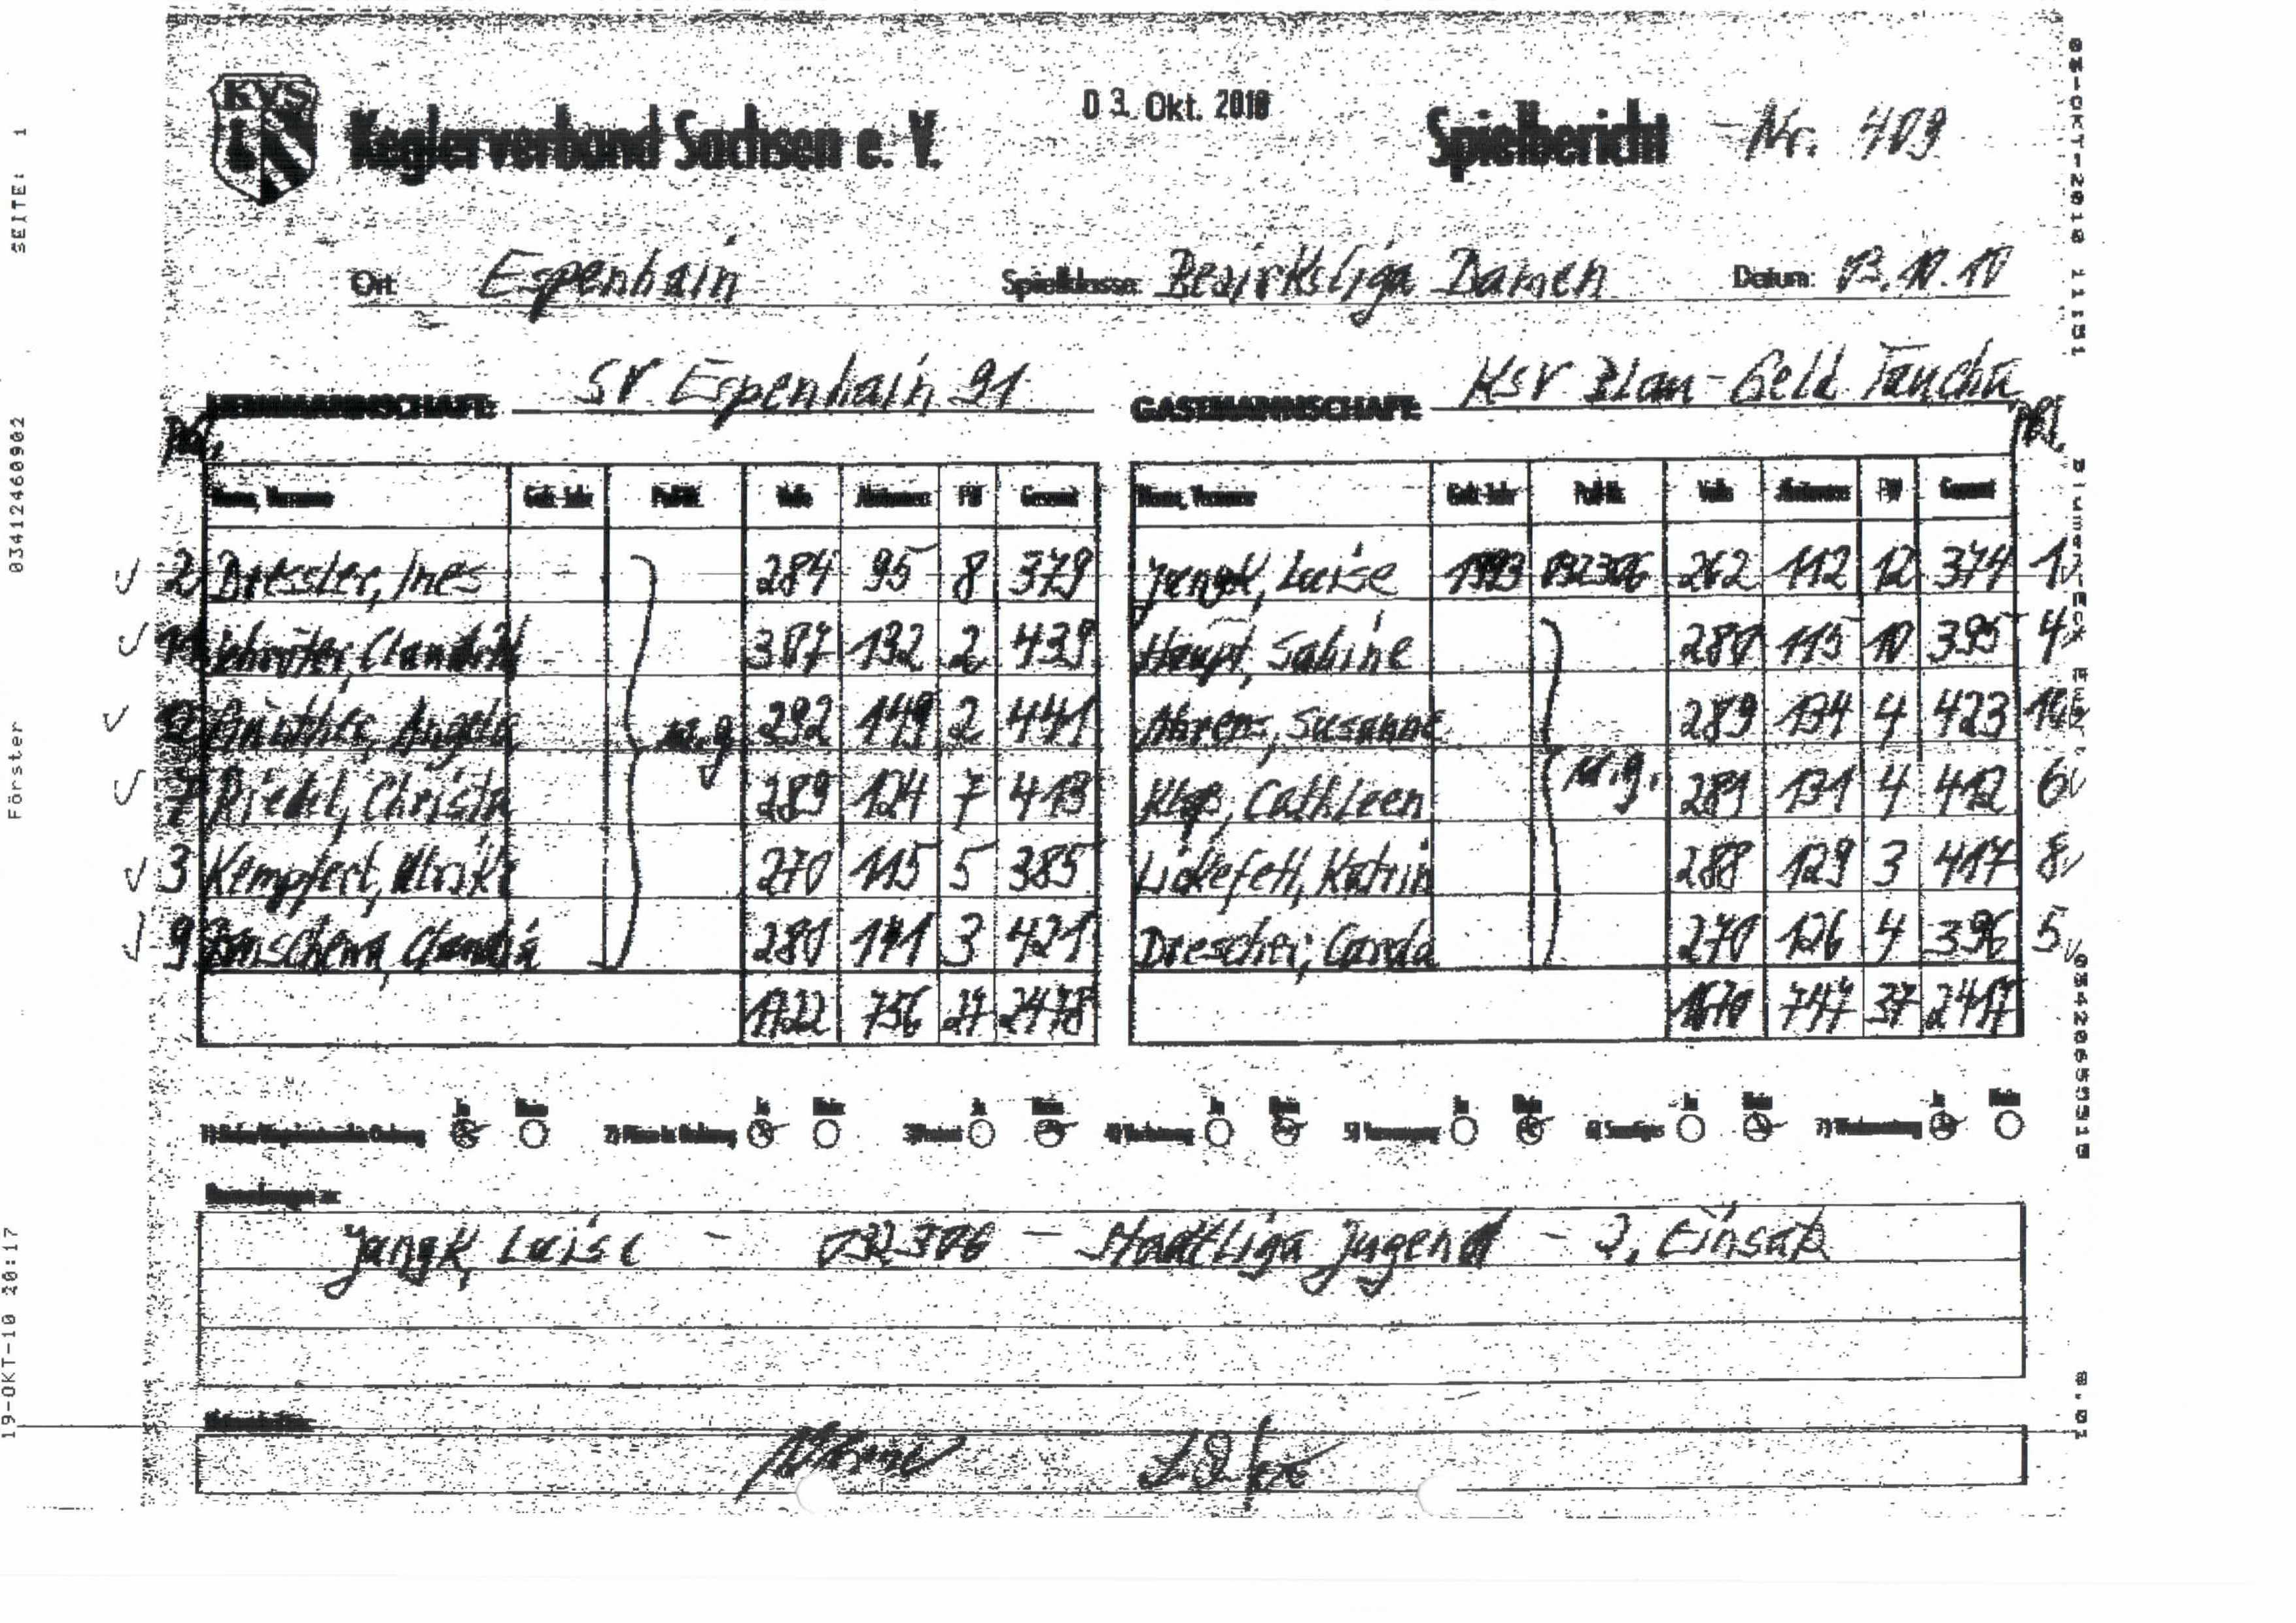 KVS
Keglerverband Sachsen e. V.
03. Okt. 2010
Spielbericht - Nr. 409
Ort: Espenhain Spielklasse: Bezirksliga Damen Datum: 03.10.10
HEIMMANNSCHAFT: SV Espenhain 91 GASTMANNSCHAFT: KSV Blau-Geld Taucha
Pkt. Pkt.
Name, Vorname Geb.-Jahr Paß-Nr. Volle Abräumen FW Gesamt Name, Vorname Geb.-Jahr Paß-Nr. Volle Abräumen FW Gesamt
2 Dressler, Ines 284 95 8 379 Jangk, Luise 1993 032306 262 112 12 374 1
11 Schröter, Claudia 307 132 2 439 Haupt, Sabine 280 115 10 395 4
12 Günther, Angela 292 149 2 441 Ahrens, Susanne 289 134 4 423 10
7 Riedel, Christa 289 124 7 413 Cathleen 281 131 4 412 6
3 Kempfert, Ulrike 270 115 5 385 Lickefett, Katrin 288 129 3 417 8
9 Claudia 280 141 3 421 Drescher, 270 126 4 396 5
m.g. m.g.
1722 756 27 2478 1670 747 37 2417
Ja Nein Ja Nein Ja Nein Ja Nein Ja Nein Ja Nein Ja Nein
2) Pässe in Ordnung 3) Protest 4) Verletzung 5) Verwarnung 6) Sonstiges
Bemerkungen zu:
Jangk, Luise - 032306 - Stadtliga Jugend - 2. Einsatz
Unterschriften:
19-OKT-10 20:17 Förster 03412460902 SEITE: 1
03-OKT-2010 11:51 03420655515 S.01